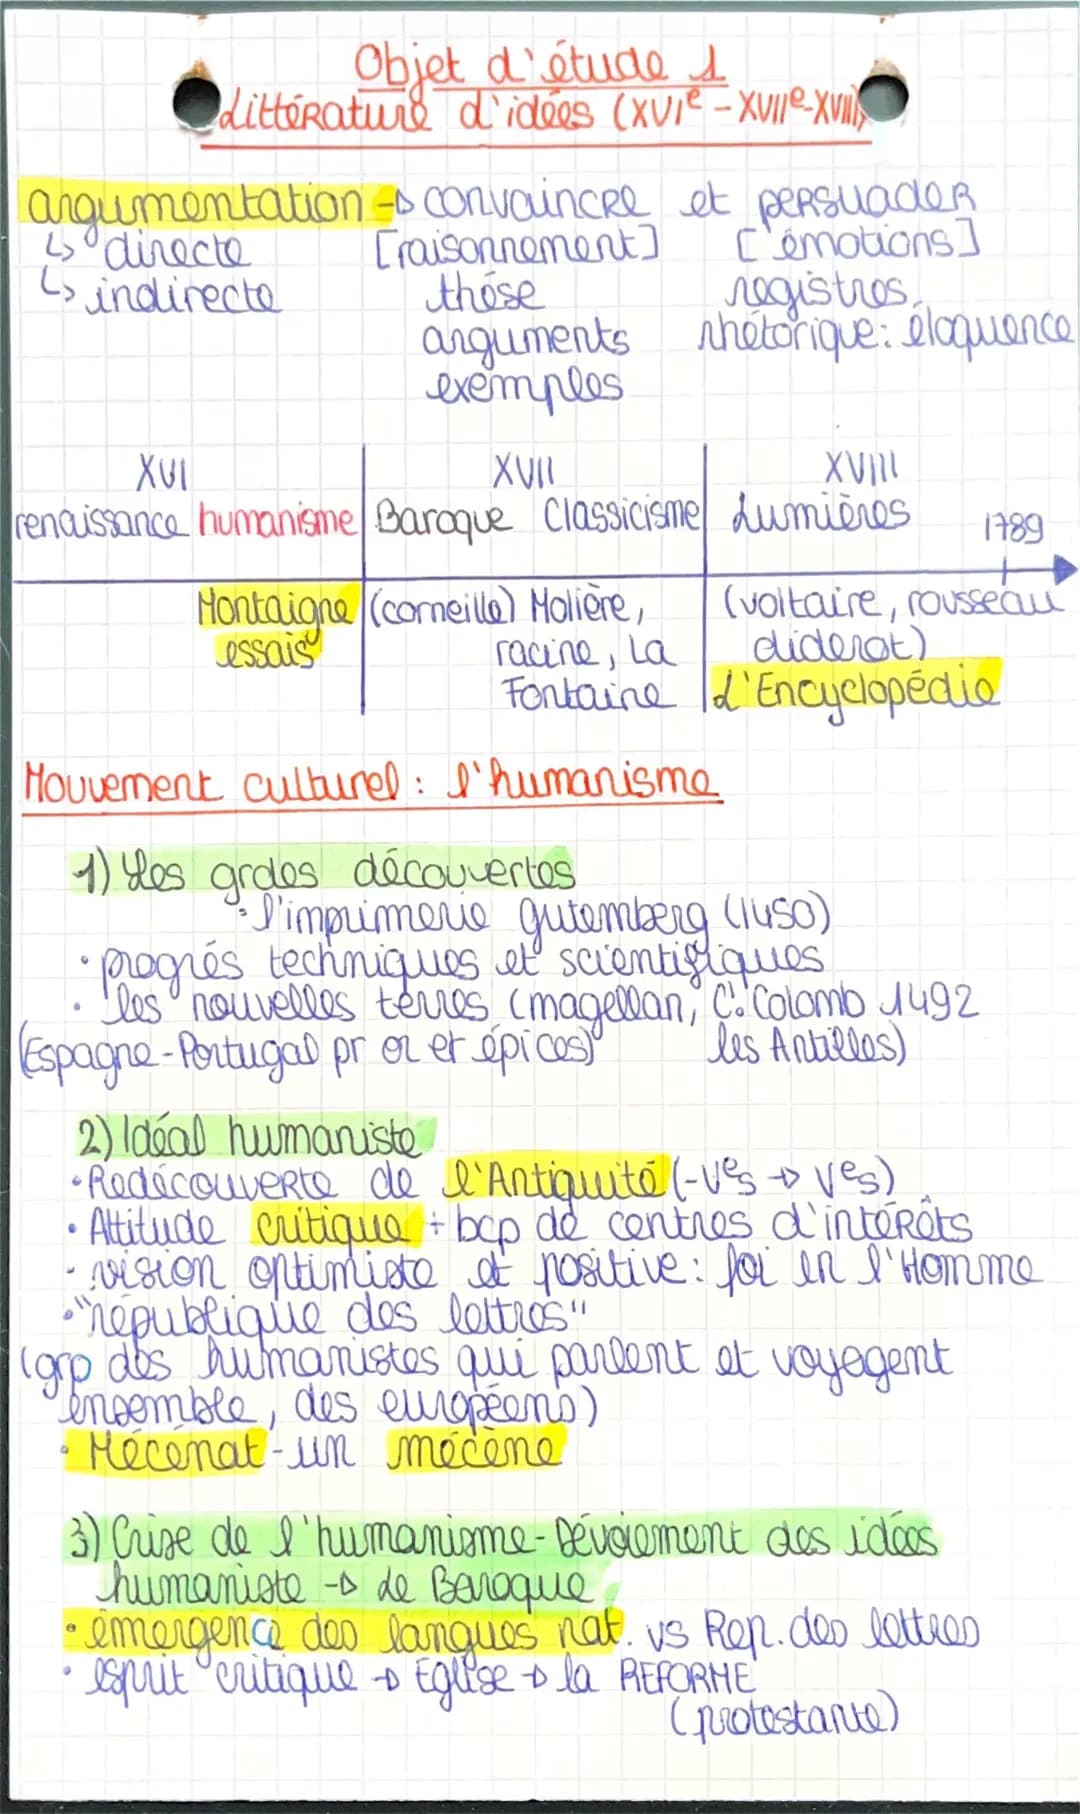 Objet d'étude 1
Littérature d'idées (XVIe - XVIIe-XVIII)
argumentation → convaincre et persuader
↳ directe [raisonnement] [émotions]
↳ indirecte thèse registres,
arguments rhétorique: éloquence
exemples
XVI XVII XVIII
renaissance humanisme Baroque Classicisme Lumières 1789
Montaigne (corneille) Molière, (voltaire, rousseau
essais racine, La diderot)
Fontaine L'Encyclopédie
Mouvement culturel : l'humanisme
1) Les grdes découvertes
• l'imprimerie gutemberg (1450)
• progrés techniques et scientifiques
• les nouvelles terres (magellan, C. Colomb 1492
(Espagne-Portugal pr or et épices) les Antilles)
2) Idéal humaniste
• Redécouverte de l'Antiquité (-Ves → Ves)
• Attitude critique + bcp de centres d'intérêts
• vision optimiste et positive : foi en l'Homme
• "république des lettres"
(grp des humanistes qui parlent et voyegent
ensemble, des européens)
• Mécénat - un mécène
3) Crise de l'humanisme - Dévoiement des idées
humaniste → le Baroque
• émergence des langues nat. vs Rep. des lettres
• esprit critique → Eglise → la REFORME
(protestante)